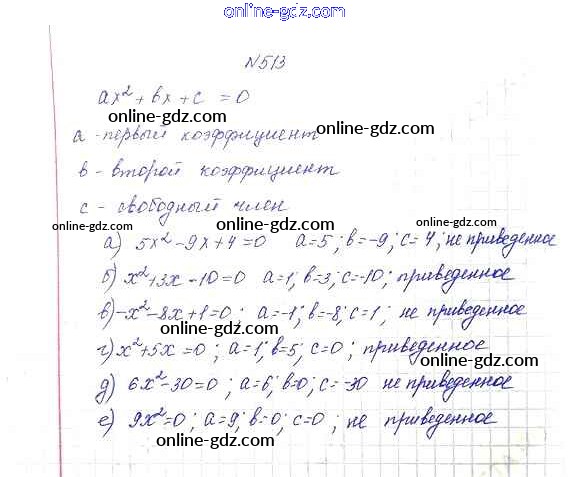 online-gdz.com
N513
ax² + bx + c = 0
online-gdz.com
а - первый коэффициент
online-gdz.com
в - второй коэффициент
online-gdz.com
с - свободный член
online-gdz.com online-gdz.com
а) 5x² - 9x + 4 = 0 a = 5; b = -9; c = 4; не приведенное
online-gdz.com
б) x² + 3x - 10 = 0 a = 1; b = 3; c = -10; приведенное
online-gdz.com
в) -x² - 8x + 1 = 0; a = -1; b = -8; c = 1; не приведенное
online-gdz.com
г) x² + 5x = 0; a = 1; b = 5; c = 0; приведенное
online-gdz.com
д) 6x² - 30 = 0; a = 6; b = 0; c = -30 не приведенное
online-gdz.com
е) 9x² = 0; a = 9; b = 0; c = 0; не приведенное
online-gdz.com